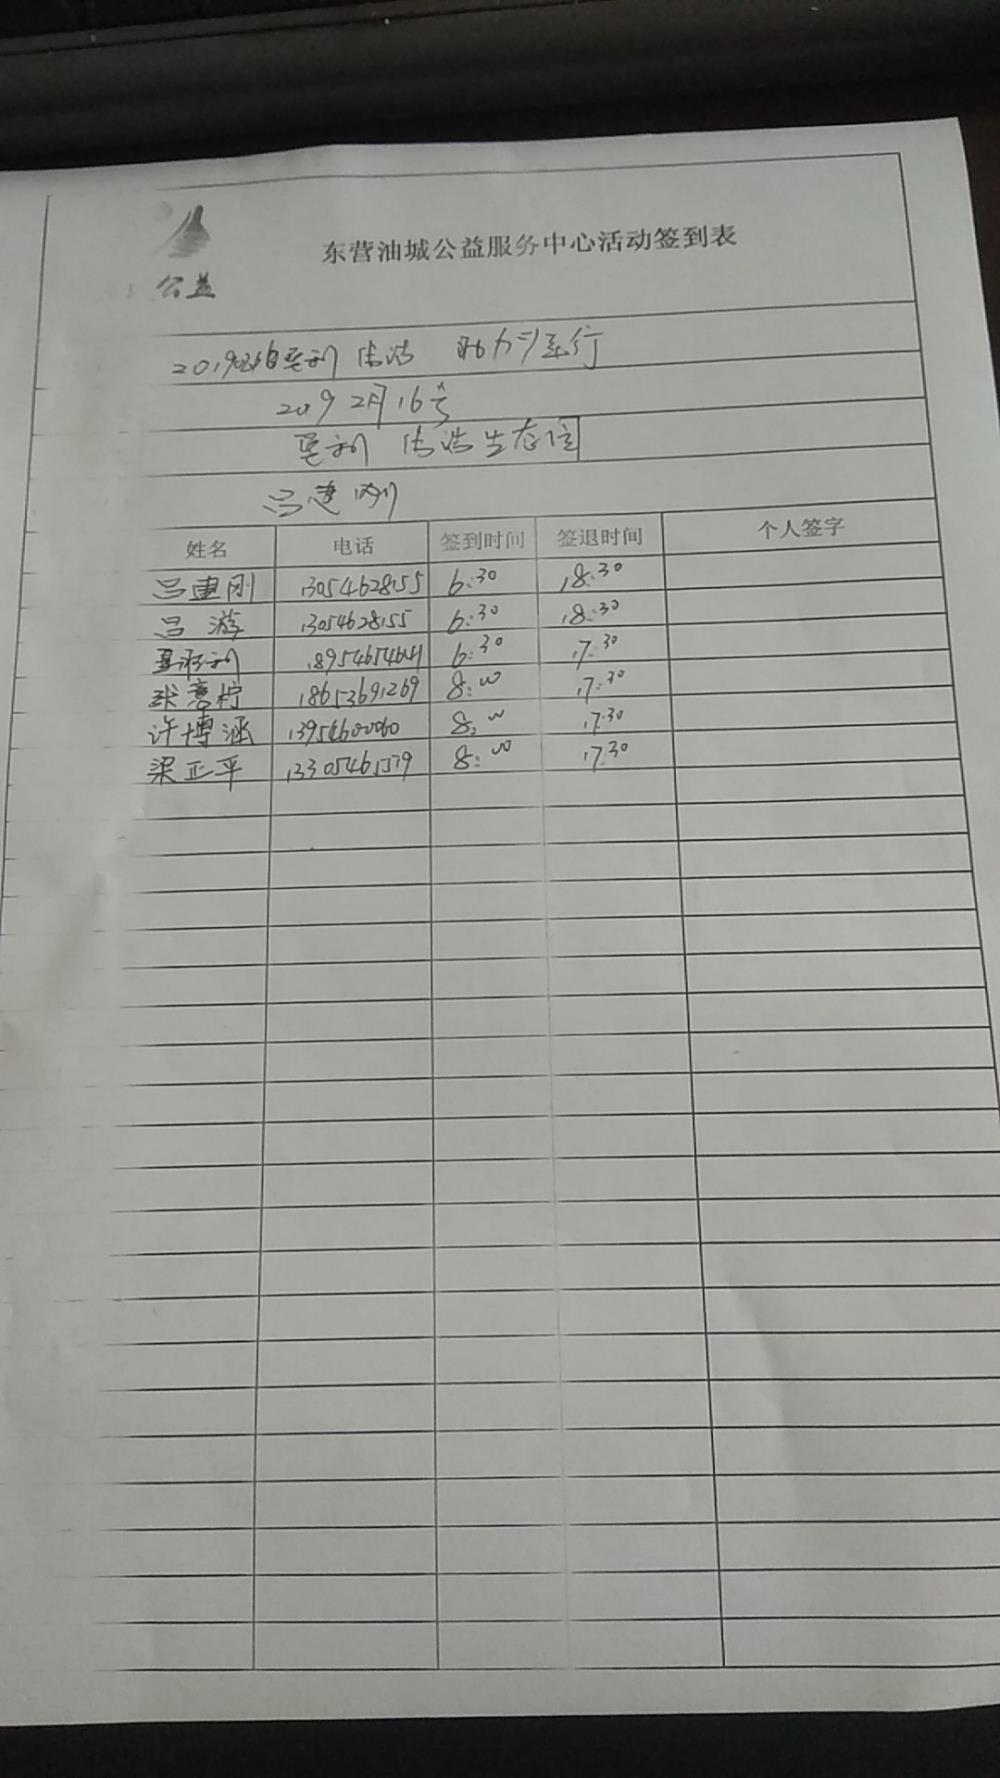 公益
东营油城公益服务中心活动签到表
2019 垦利 佳浩 助力 行
2019 2月16号
垦利 佳浩生态园
吕建刚
姓名 电话 签到时间 签退时间 个人签字
吕建刚 13054628155 6:30 18:30
吕游 13054628155 6:30 18:30
6:30 17:30
张意柠 18653691269 8:00 17:30
许博涵 13954600060 8:00 17:30
梁正平 13305461579 8:00 17:30